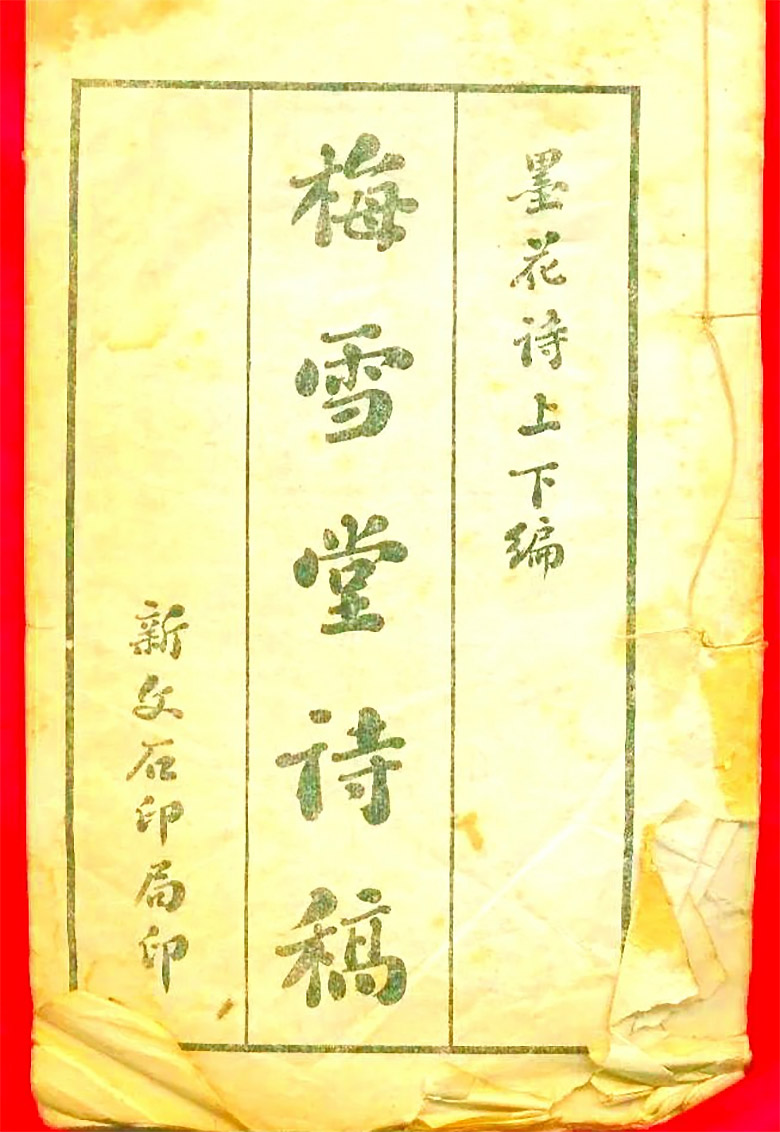 墨花诗上下编
梅雪堂诗稿
新文石印局印